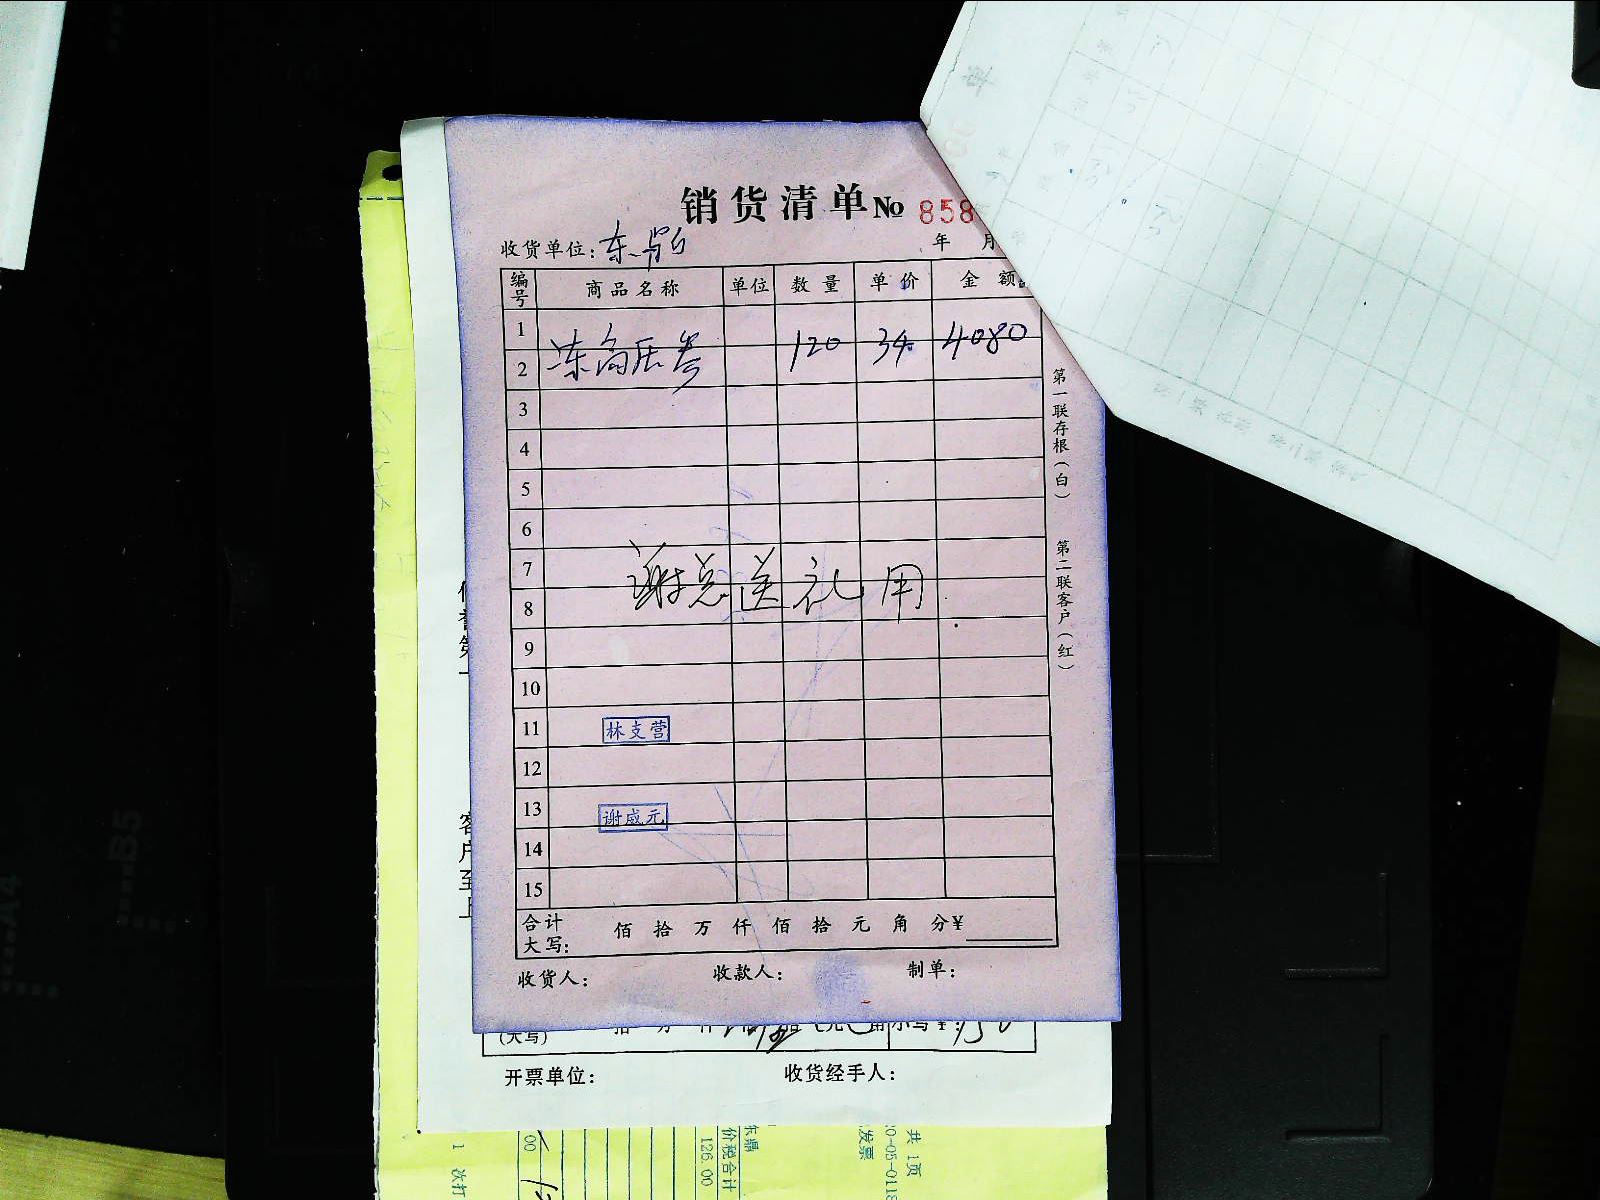 销货清单№ 858
收货单位:东
年 月
编号 商品名称 单位 数量 单价 金额
1
2 120 34 4080
3
4
5
6
7
8 谢总送礼用
9
10
11 林支营
12
13 谢成元
14
15
合计大写: 佰 拾 万 仟 佰 拾 元 角 分¥
收货人: 收款人: 制单:
第一联存根(白) 第二联客户(红)
(大写)
小写¥:
开票单位: 收货经手人:
客户至上
东鼎
价税合计
126.00
发票
共1页
1 次打
00
A4
B5